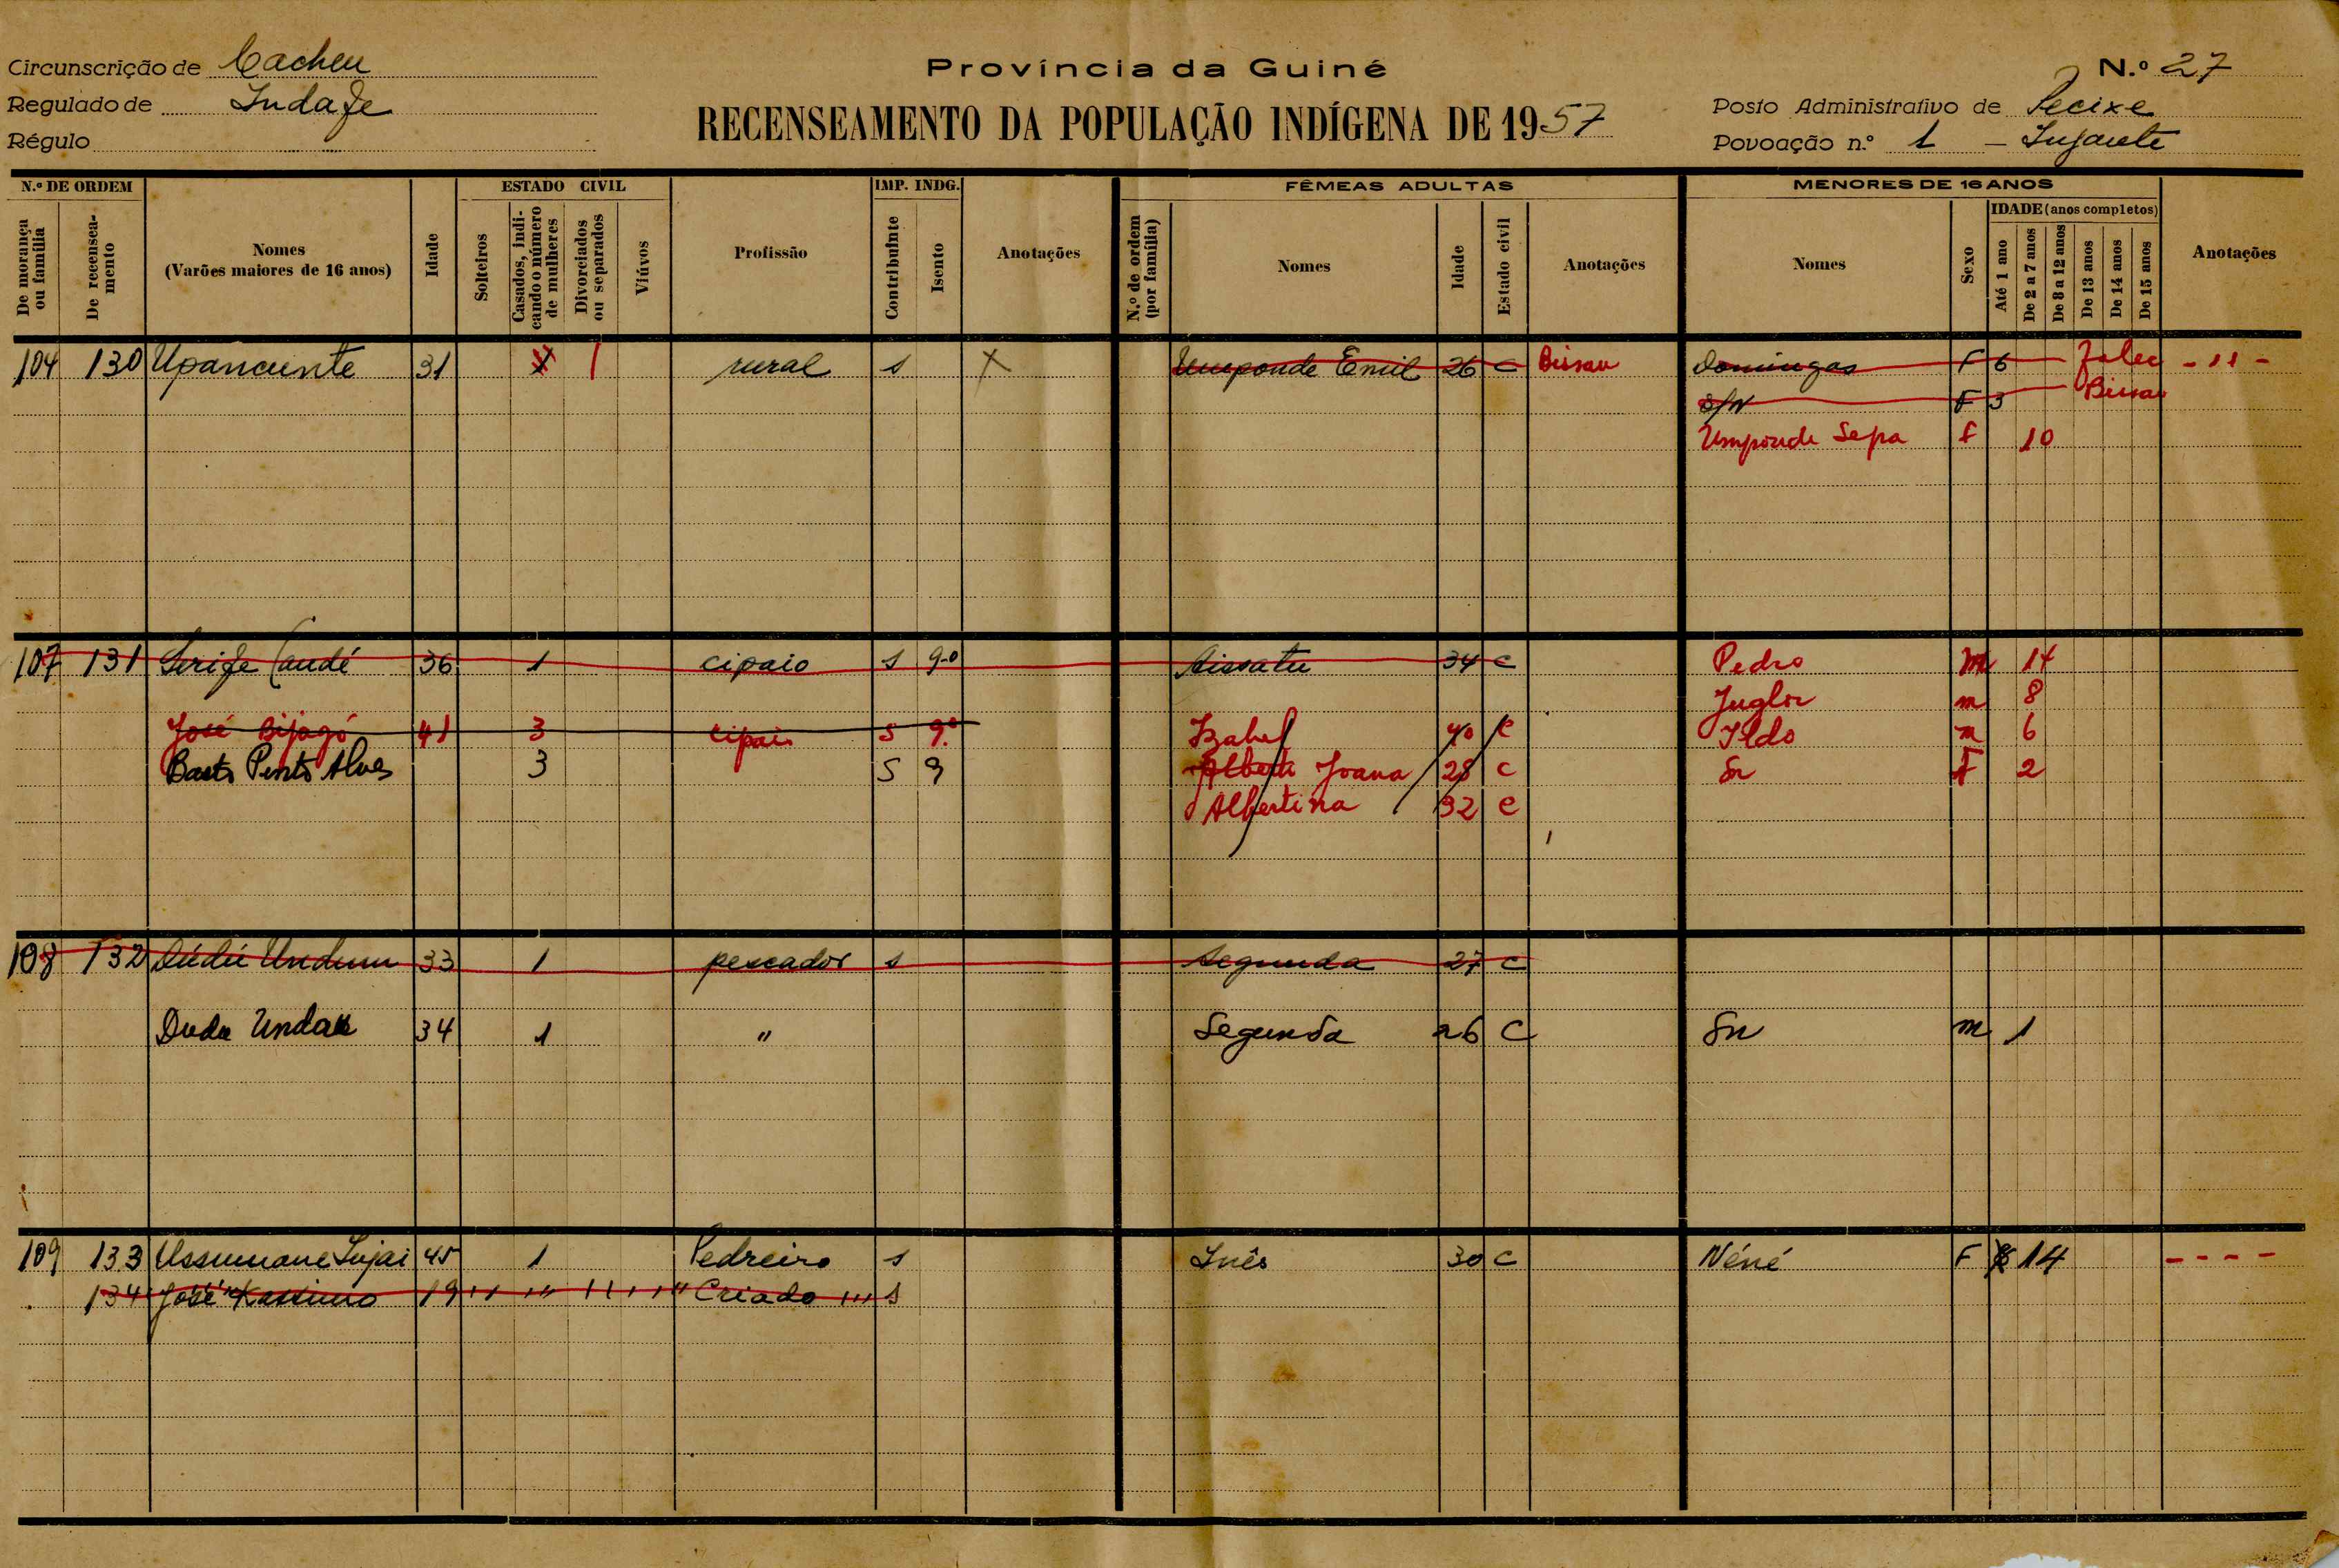 Circunscrição de Cacheu
Regulado de Indafe
Régulo
Província da Guiné
RECENSEAMENTO DA POPULAÇÃO INDÍGENA DE 1957
N.º 27
Posto Administrativo de Pecixe
Povoação n.º 1 –
N.º DE ORDEM
De morança ou família
De recenseamento
Nomes
(Varões maiores de 16 anos)
Idade
ESTADO CIVIL
Solteiros
Casados, indicando o número de mulheres
Divorciados ou separados
Viúvos
Profissão
IMP. INDG.
Contribuinte
Isento
Anotações
FÊMEAS ADULTAS
N.º de ordem (por família)
Nomes
Idade
Estado civil
Anotações
MENORES DE 16 ANOS
Nomes
Sexo
IDADE (anos completos)
Até 1 ano
De 2 a 7 anos
De 8 a 12 anos
De 13 anos
De 14 anos
De 15 anos
Anotações
104 130 Upancunte 31 rural s X Umponde Emil 26 C Bissau Domingas F 6 - 11 -
S/N F 3 Bissau
Umponde Sepa F 10
107 131 Serife Candé 36 1 cipaio s 9.º Aissatu 34 C Pedro M 14
Juglor m 8
José Bijagó 41 3 cipaio S 9.º Izabel 40 C Ildo m 6
Pinto Alves 3 S 9 Joana 28 C Sn F 2
Albertina 32 C
108 132 Dúdú Undum 33 1 pescador s Segunda 27 C
Dudu 34 1 " Segunda 26 C Sn m 1
109 133 Ussumane Injai 45 1 Pedreiro s Inês 30 C Néné F 14 - - - -
134 José Kassimo 19 Criado s